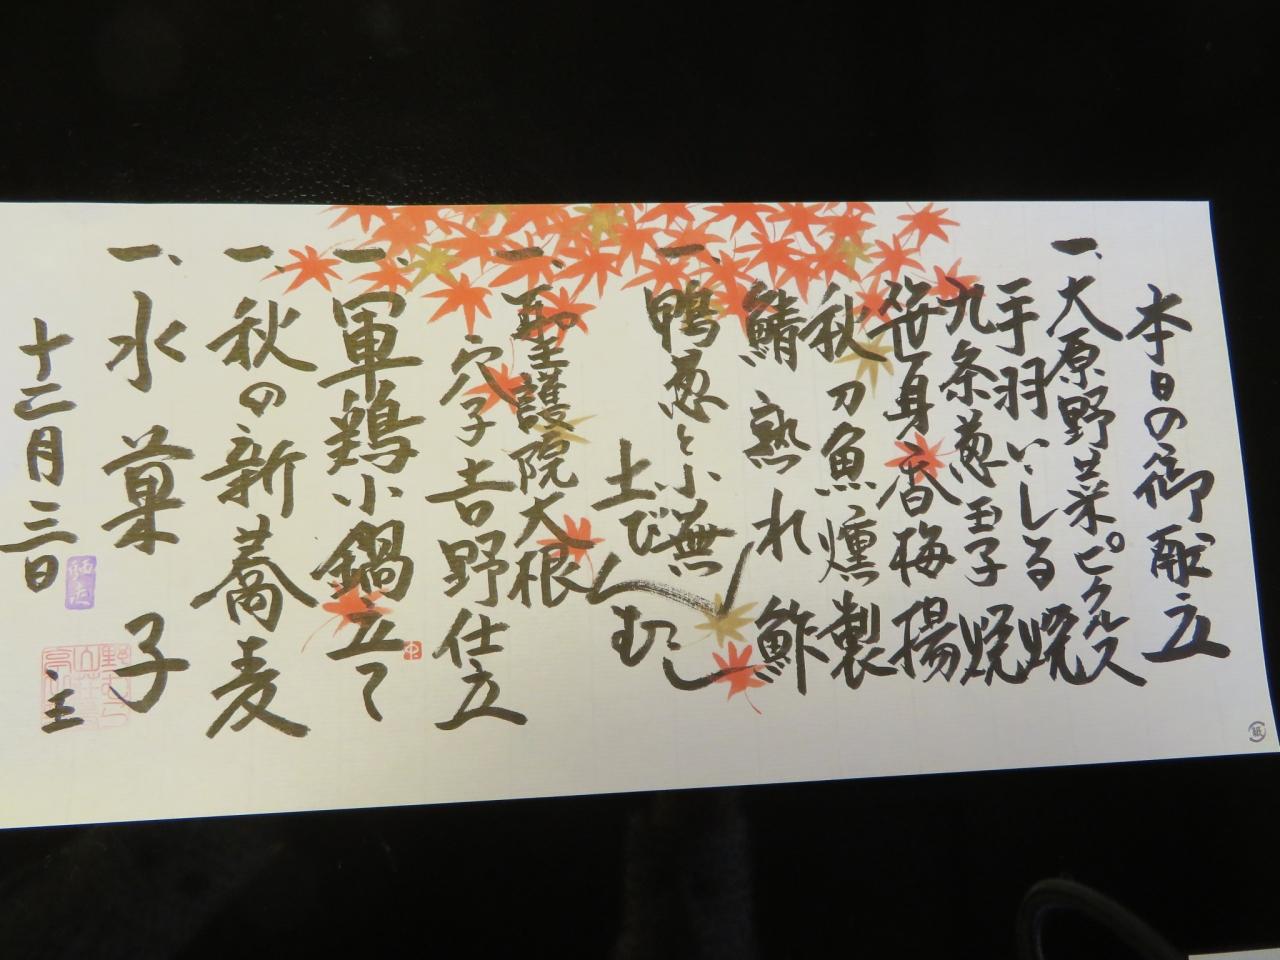 本日の御献立
一、大原野菜ピクルス
手羽いしる焼
九条葱玉子焼
笹身香梅揚
秋刀魚燻製
鯖熟れ鮓
一、鴨葱と小蕪
土びんむし
一、聖護院大根
穴子吉野仕立
一、軍鶏小鍋立て
一、秋の新蕎麦
一、水菓子
十二月三日
主